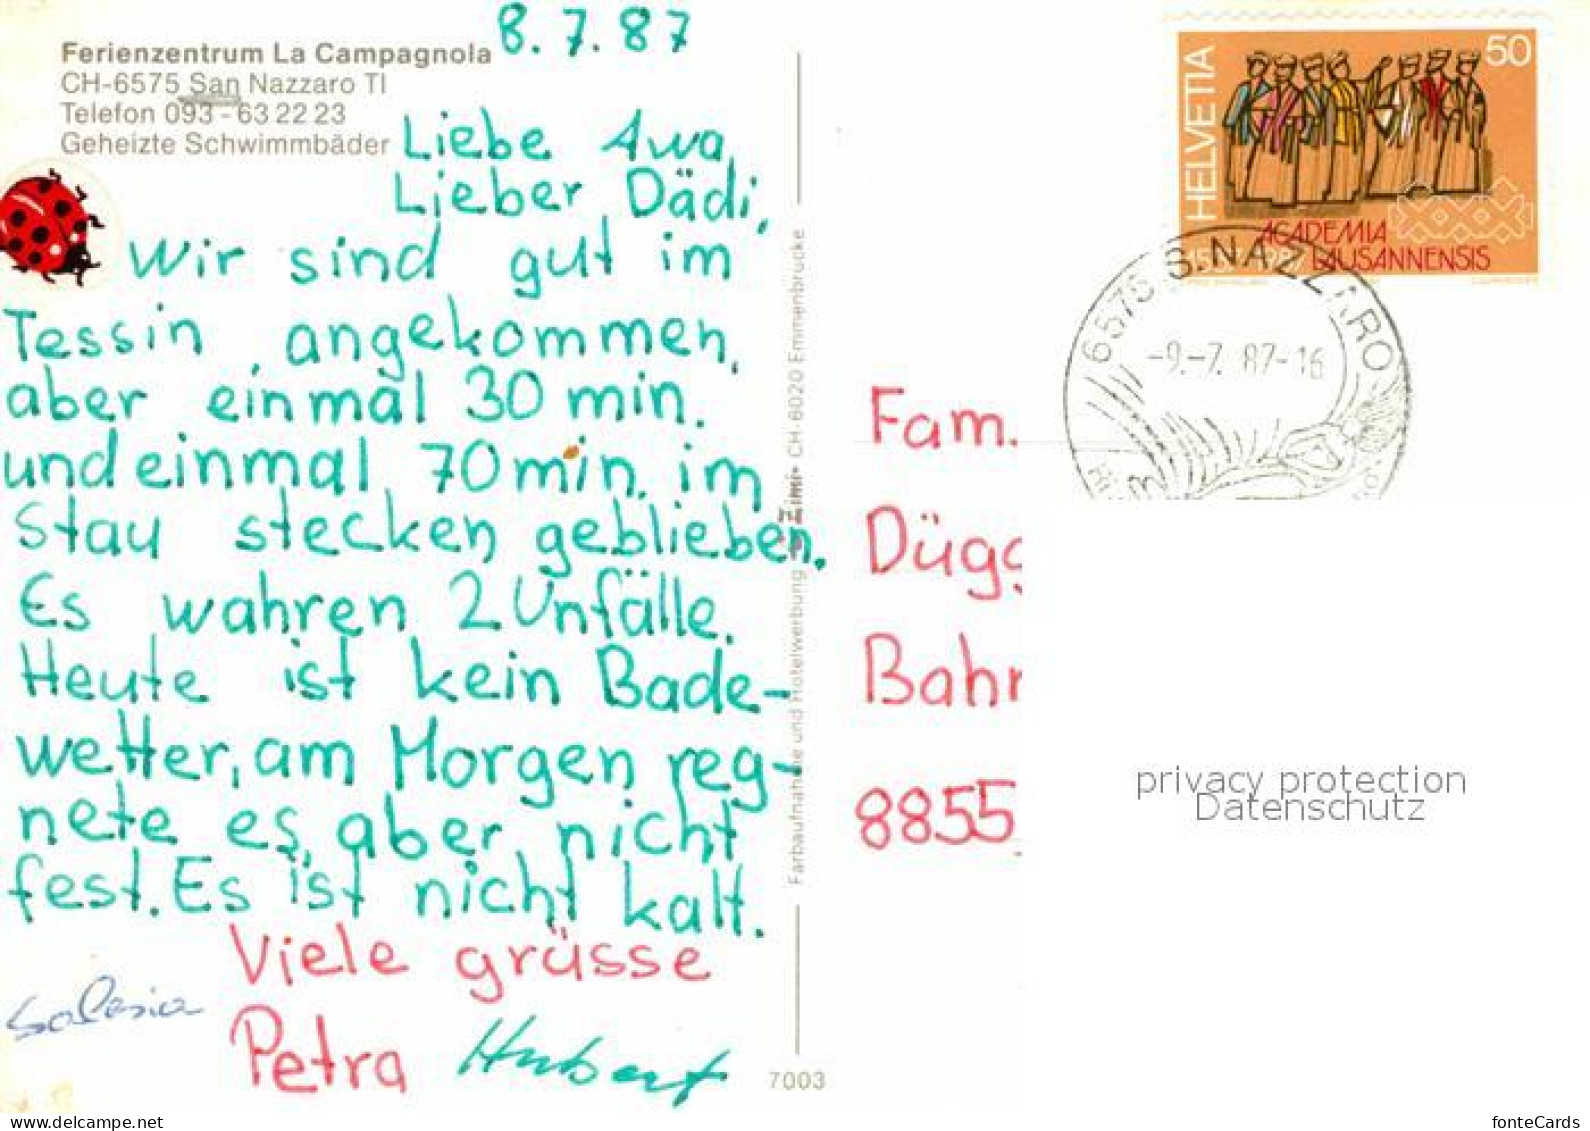 8.7.87
Ferienzentrum La Campagnola
CH-6575 San Nazzaro TI
Telefon 093-63 22 23
Geheizte Schwimmbäder
Liebe Awa,
Lieber Dädi,
Wir sind gut im
Tessin angekommen,
aber einmal 30 min.
und einmal 70 min. im
Stau stecken geblieben.
Es wahren 2 Unfälle.
Heute ist kein Bade-
wetter, am Morgen reg-
nete es, aber nicht
fest. Es ist nicht kalt.
Viele grüsse
Petra Hubert
7003
Farbaufnahme und Hotelwerbung Zimi CH-6020 Emmenbrücke
HELVETIA
50
ACADEMIA
1987 LAUSANNENSIS
6575 S.NAZZARO
-9.-7. 87-16
Fam.
Düg
Bahn
8855
privacy protection
Datenschutz
www.delcampe.net
fonteCards